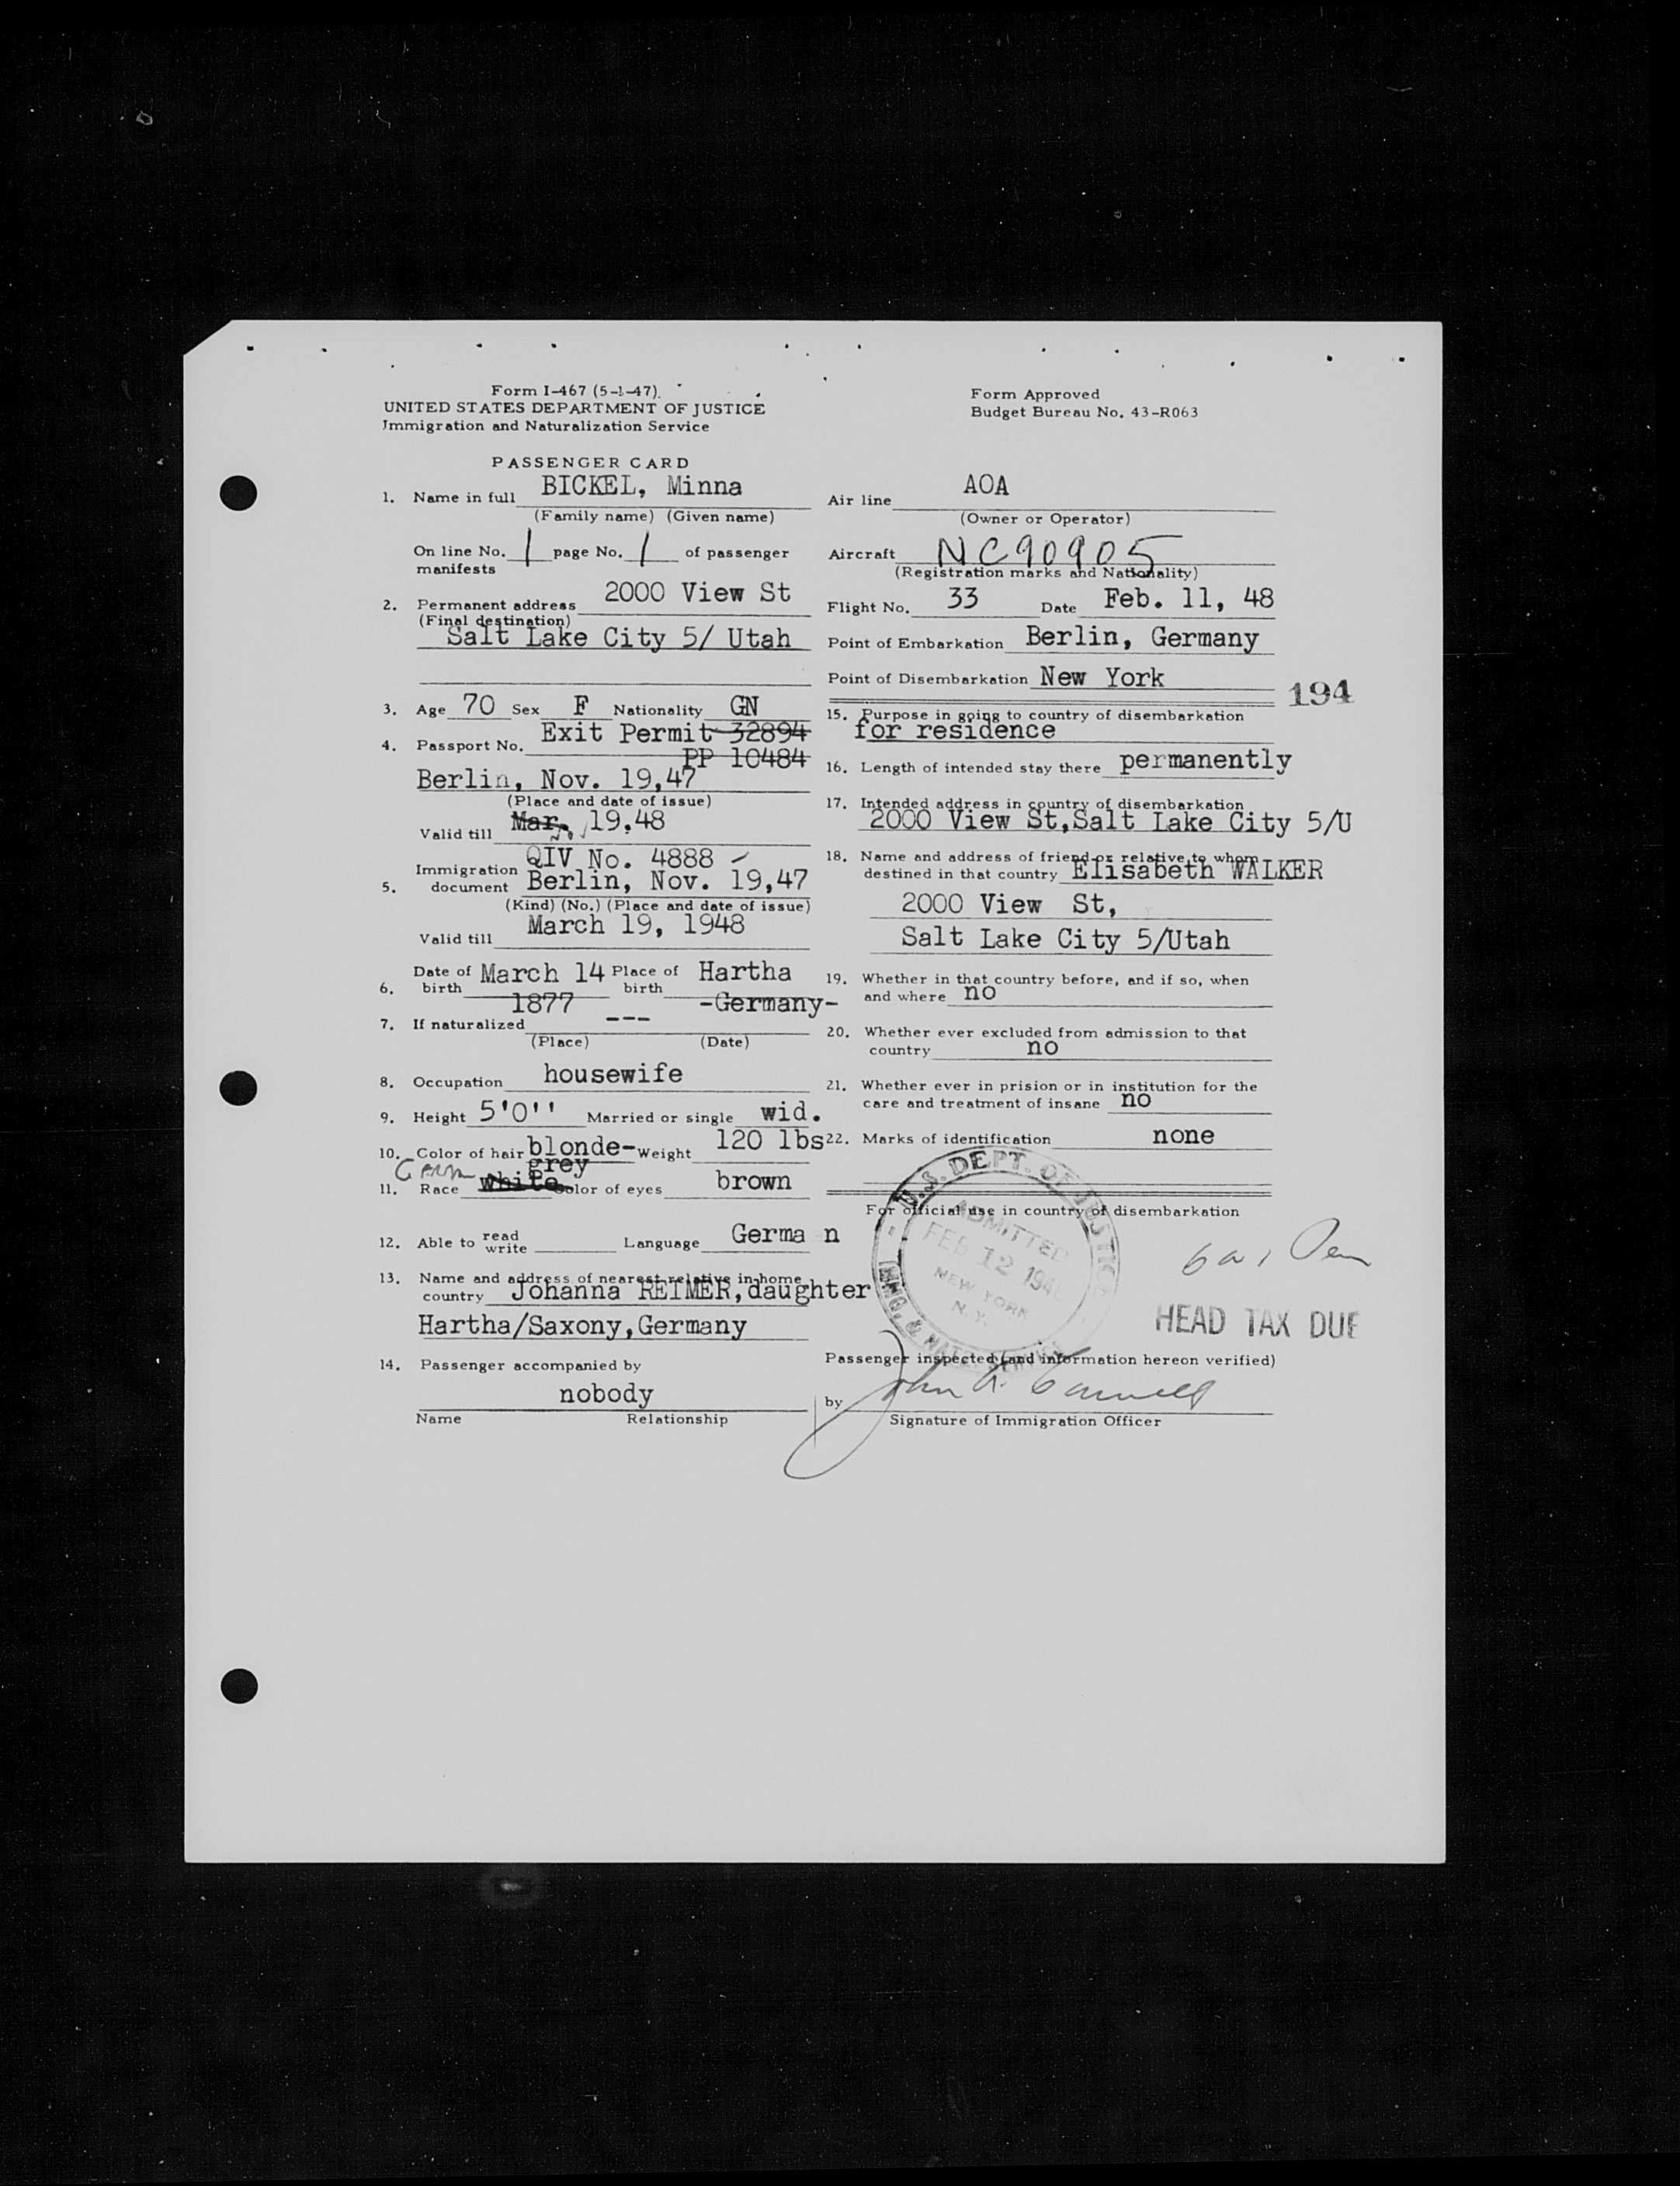 Form I-467 (5-1-47).
UNITED STATES DEPARTMENT OF JUSTICE
Immigration and Naturalization Service
Form Approved
Budget Bureau No. 43-R063
PASSENGER CARD
1. Name in full BICKEL, Minna
(Family name) (Given name)
On line No. 1 page No. 1 of passenger
manifests
2. Permanent address 2000 View St
(Final destination)
Salt Lake City 5/ Utah
3. Age 70 Sex F Nationality GN
4. Passport No. Exit Permit 32894
PP 10484
Berlin, Nov. 19,47
(Place and date of issue)
Valid till Mar. 19.48
5. Immigration document QIV No. 4888
Berlin, Nov. 19,47
(Kind) (No.) (Place and date of issue)
Valid till March 19, 1948
6. Date of birth March 14 Place of birth Hartha
1877 -Germany-
7. If naturalized ---
(Place) (Date)
8. Occupation housewife
9. Height 5'0'' Married or single wid.
10. Color of hair blonde- Weight 120 lbs
grey
Germ
11. Race white Color of eyes brown
12. Able to read write Language Germa n
13. Name and address of nearest relative in home
country Johanna REIMER, daughter
Hartha/Saxony, Germany
14. Passenger accompanied by
nobody
Name Relationship
Air line AOA
(Owner or Operator)
Aircraft NC90905
(Registration marks and Nationality)
Flight No. 33 Date Feb. 11, 48
Point of Embarkation Berlin, Germany
Point of Disembarkation New York
194
15. Purpose in going to country of disembarkation
for residence
16. Length of intended stay there permanently
17. Intended address in country of disembarkation
2000 View St, Salt Lake City 5/U
18. Name and address of friend or relative to whom
destined in that country Elisabeth WALKER
2000 View St,
Salt Lake City 5/Utah
19. Whether in that country before, and if so, when
and where no
20. Whether ever excluded from admission to that
country no
21. Whether ever in prision or in institution for the
care and treatment of insane no
22. Marks of identification none
For official use in country of disembarkation
U.S. DEPT. OF JUSTICE
ADMITTED
FEB 12 194
NEW YORK
N. Y.
IMMG. & NATZ. SERVICE
HEAD TAX DUE
Passenger inspected (and information hereon verified)
by John
Signature of Immigration Officer